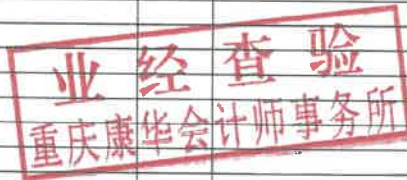 业经查验
重庆康华会计师事务所